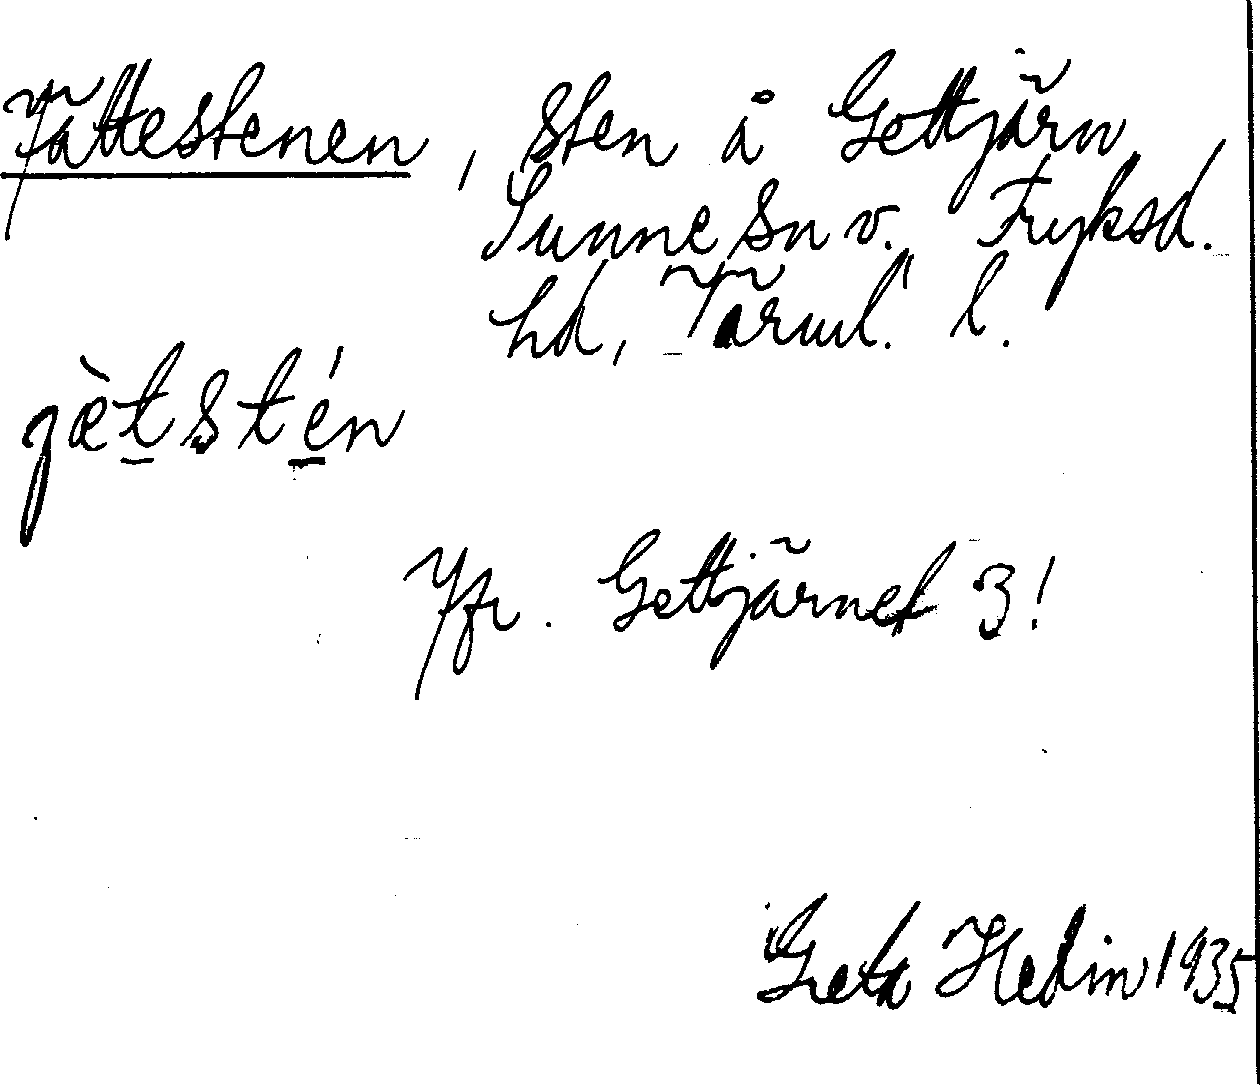 Jättestenen, sten å Gettjärn
Sunne sn v. Fryksd.
hd, Värml. l.
jètstén
Jfr. Gettjärnet 3!
Greta Hedin 1935